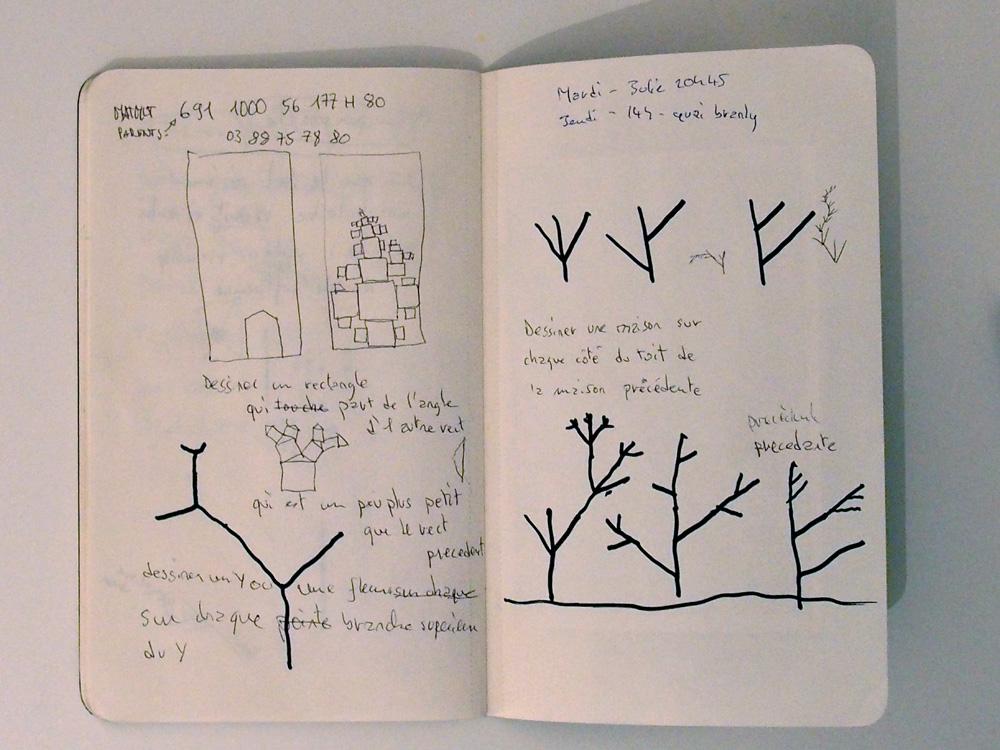 PARENTS 691 1000 56 177 H 80
03 88 75 78 80
Dessiner un rectangle
qui touche part de l'angle
d'1 autre rect
qui est un peu plus petit
que le rect
precedent
dessiner un Y ou une fleur sur chaque
sur chaque pointe branche superieure
du Y
Mardi - Julie 20h45
Jeudi - 14h - quai branly
Dessiner une maison sur
chaque côté du toit de
la maison précédente
precedente